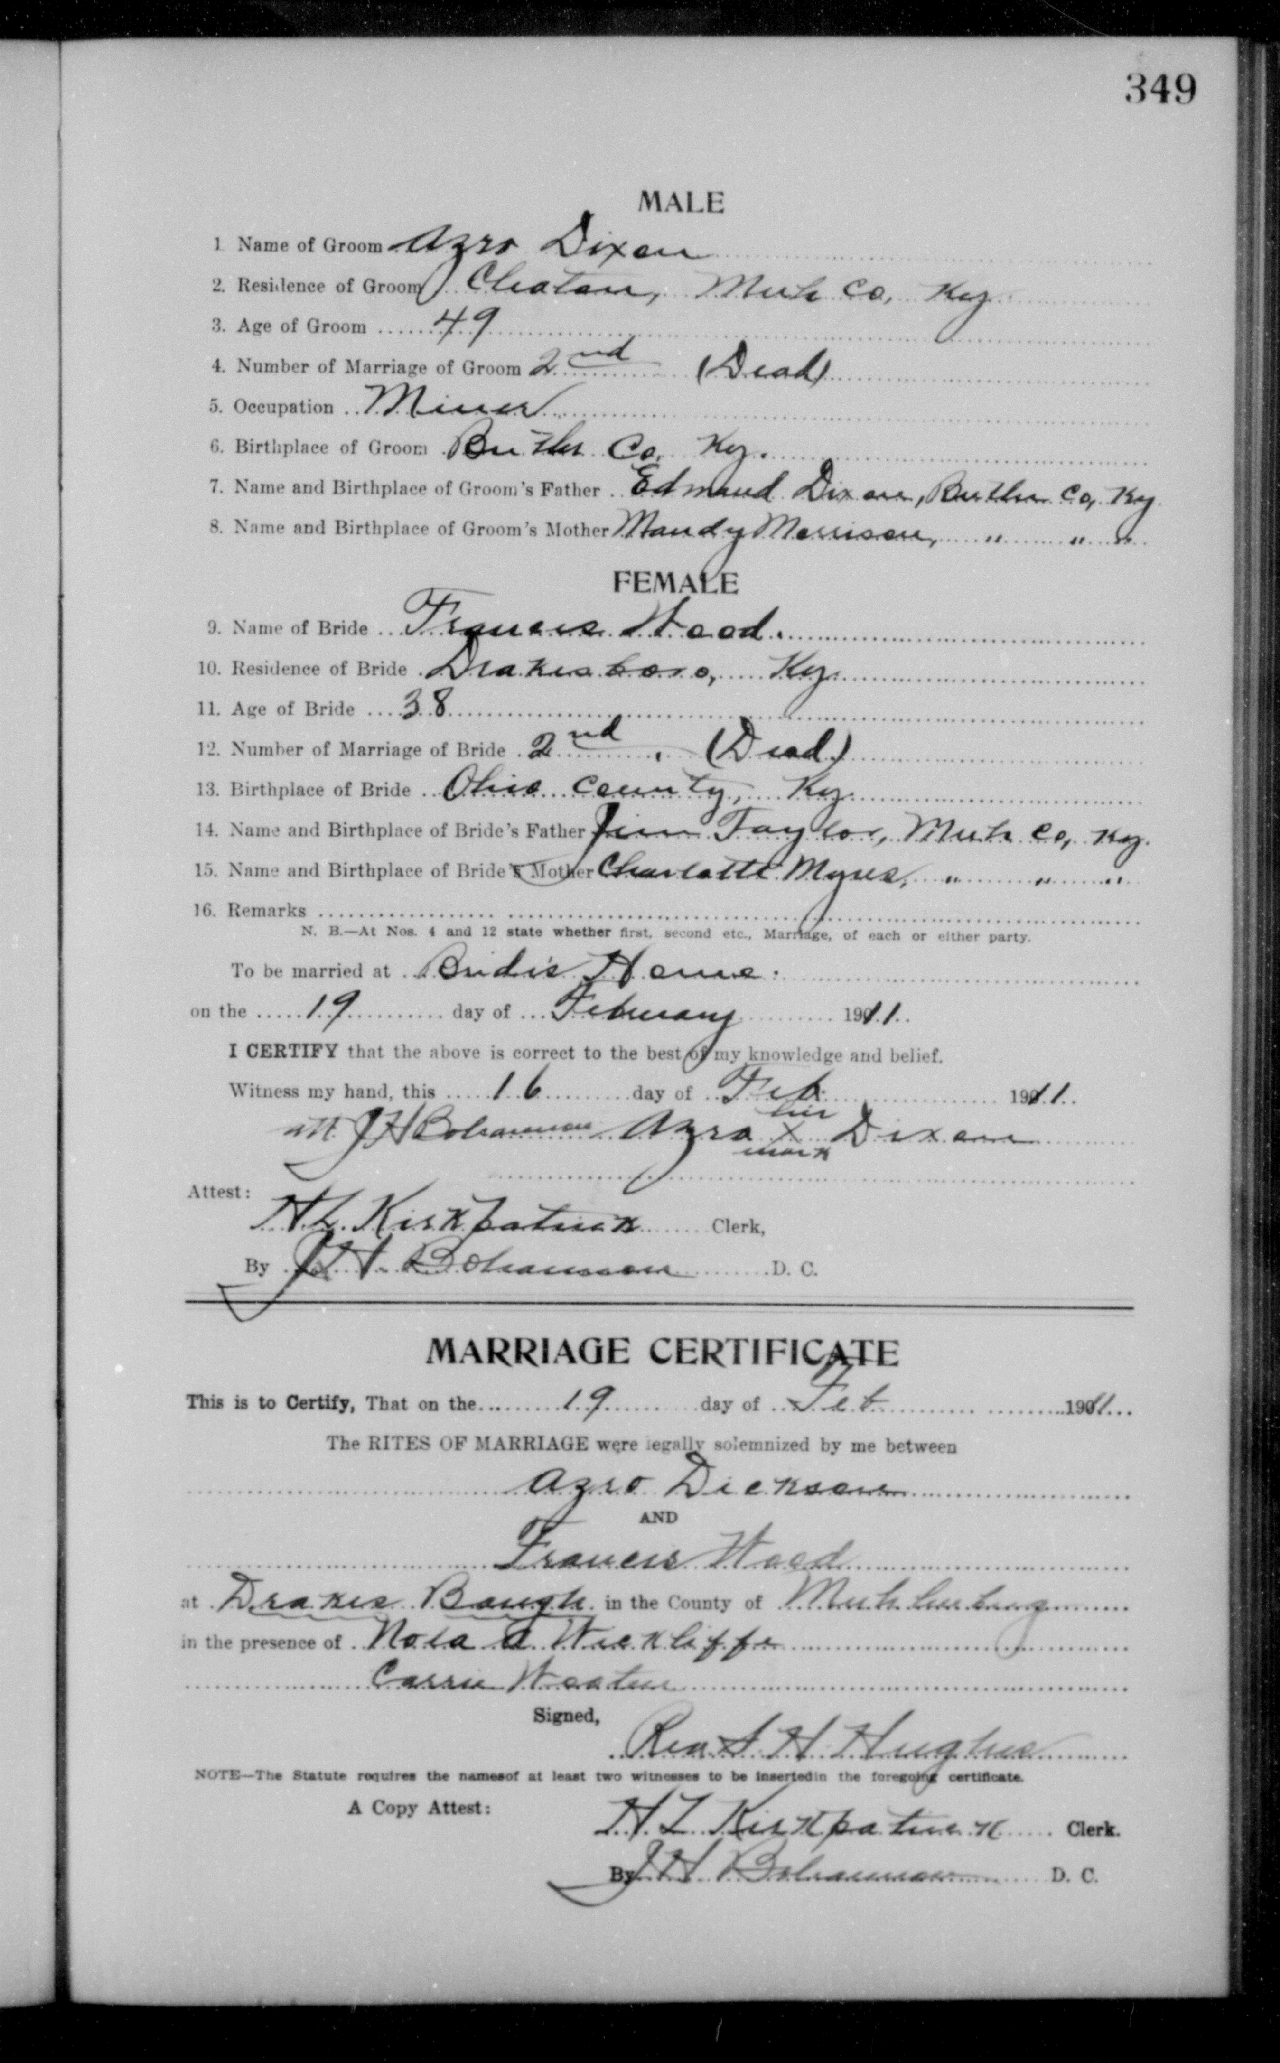 349
MALE
1. Name of Groom Azro Dixon
2. Residence of Groom Cleaton, Muh Co, Ky
3. Age of Groom 49
4. Number of Marriage of Groom 2nd (Dead)
5. Occupation Miner
6. Birthplace of Groom Butler Co, Ky.
7. Name and Birthplace of Groom's Father Edmund Dixon, Butler Co, Ky
8. Name and Birthplace of Groom's Mother Mandy Morrison, " " "
FEMALE
9. Name of Bride Frances Wood.
10. Residence of Bride Drakesboro, Ky
11. Age of Bride 38
12. Number of Marriage of Bride 2nd. (Dead)
13. Birthplace of Bride Ohio County, Ky
14. Name and Birthplace of Bride's Father Jim Taylor, Muh Co, Ky.
15. Name and Birthplace of Bride's Mother Charlotte Myres, " " "
16. Remarks
N. B.—At Nos. 4 and 12 state whether first, second etc., Marriage, of each or either party.
To be married at Bride's Home.
on the 19 day of February 1911
I CERTIFY that the above is correct to the best of my knowledge and belief.
Witness my hand, this 16 day of Feb 1911
his
att JH Bohannon Azro X Dixon
mark
Attest:
H.L. Kirkpatrick Clerk,
By JH Bohannon D. C.
MARRIAGE CERTIFICATE
This is to Certify, That on the 19 day of Feb 1911
The RITES OF MARRIAGE were legally solemnized by me between
Azro Dickson
AND
Frances Wood
at Drakes Bough in the County of Muhlenberg
in the presence of Nola Wickliffe
Carrie
Signed,
Rev S. H. Hughes
NOTE—The Statute requires the namesof at least two witnesses to be insertedin the foregoing certificate.
A Copy Attest:
H L Kirkpatrick Clerk.
By JH Bohannon D. C.